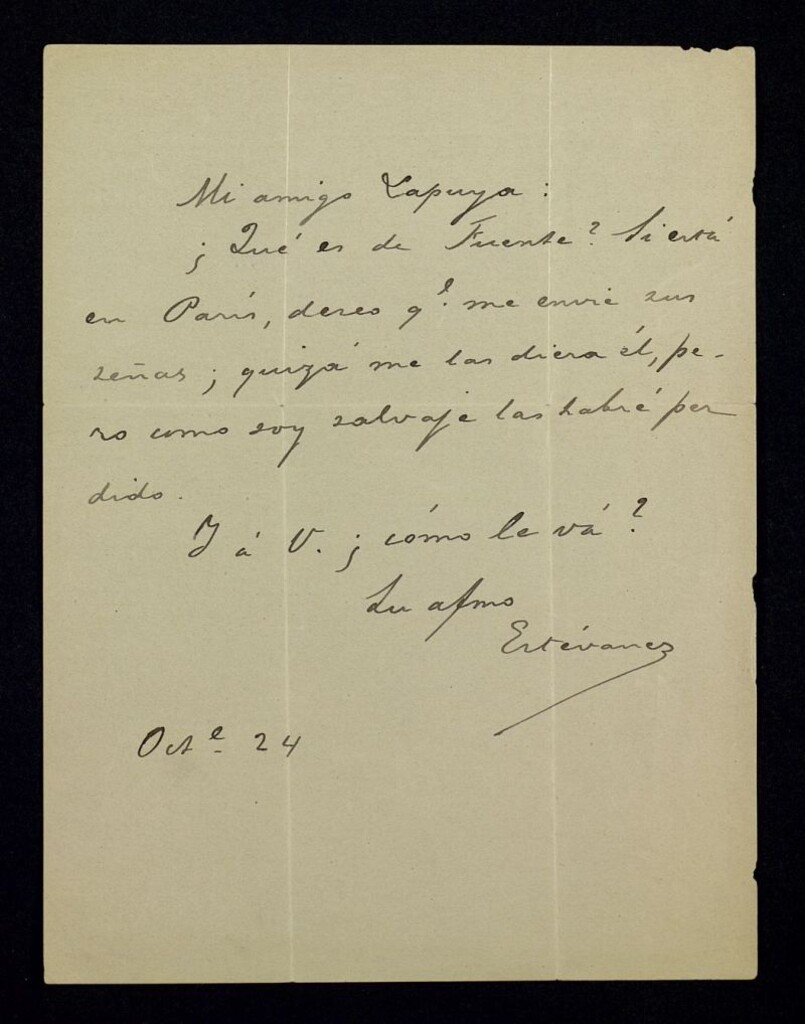 Mi amigo Lapuya:
¿Qué es de Fuente? Si está
en París, deseo q.e me envíe sus
señas; quizá me las diera él, pe-
ro como soy salvaje las habré per
dido.
Y á V. ¿cómo le vá?
Su afmo
Estévanez
Oct.e 24